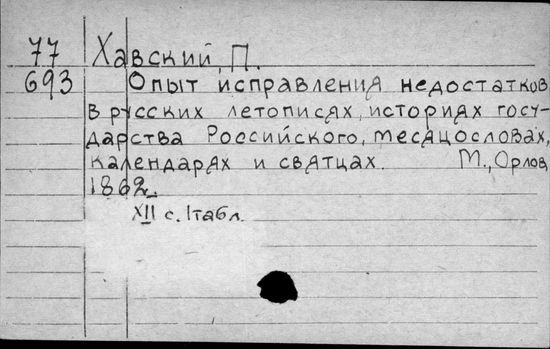 77 Хавский, П.
693 Опыт исправления недостатков
в русских летописях, историях госу-
дарства Российского, месяцословах,
календарях и святцах. М., Орлов,
1862.
XII с. 1 табл.